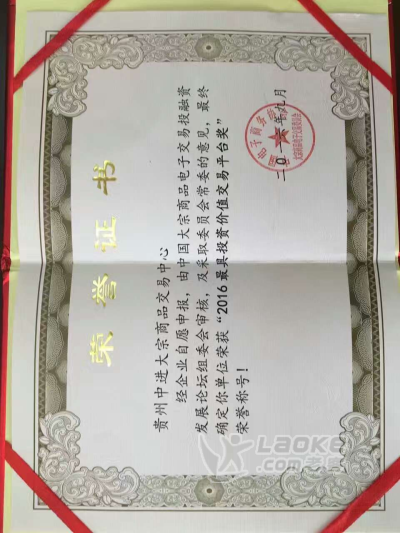 荣誉证书
贵州中进大宗商品交易中心
经企业自愿申报，由中国大宗商品电子交易投融资
发展论坛组委会审核，及采取委员会常委的意见，最终
确定你单位荣获“2016最具投资价值交易平台奖”
荣誉称号！
年九月
LAOKE
.com